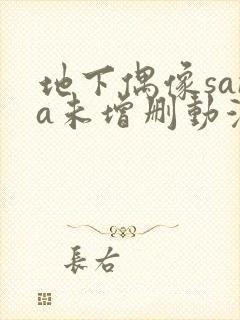 地下偶像sa
a未增删动
長右